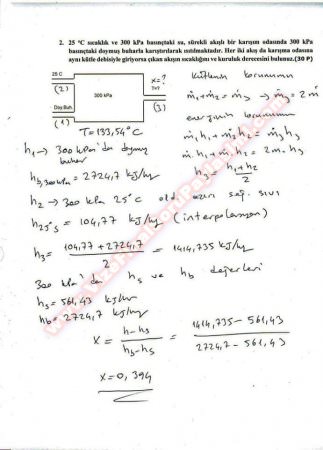 2. 25 °C sıcaklık ve 300 kPa basınçtaki su, sürekli akışlı bir karışım odasında 300 kPa
basınçtaki doymuş buharla karıştırılarak ısıtılmaktadır. Her iki akış da karışım odasına
aynı kütle debisiyle giriyorsa çıkan akışın sıcaklığını ve kuruluk derecesini bulunuz.(30 P)
25 C
(2)
300 kPa
x=?
T=?
(3)
Doy. Buh.
(1)
T=133,54°C
Kütlenin korunumu
ṁ₁+ṁ₂=ṁ₃ → ṁ₃=2ṁ
enerjinin korunumu
ṁ₁h₁+ṁ₂h₂=ṁ₃h₃
ṁ.h₁+ṁ.h₂=2ṁ.h₃
h₃=(h₁+h₂)/2
h₁ → 300 kPa'da doymuş
buhar
hb,300kPa = 2724,7 kJ/kg
h₂ → 300 kPa 25°C sıvı
h25°s = 104,77 kJ/kg (interpolasyon)
h₃= (104,77+2724,7)/2 = 1414,735 kJ/kg
300 kPa'da hs ve hb değerleri
hs=561,43 kJ/kg
hb=2724,7 kJ/kg
x = (h-hs)/(hb-hs) = (1414,735-561,43)/(2724,7-561,43)
x=0,394